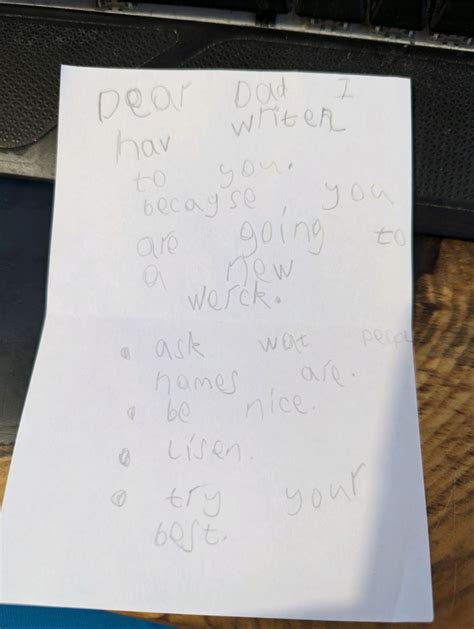 Dear Dad I
hav writen
to you.
becayse you
are going to
a new
werck.
• ask wat
names are.
• be nice.
• Lisen.
• try your
best.